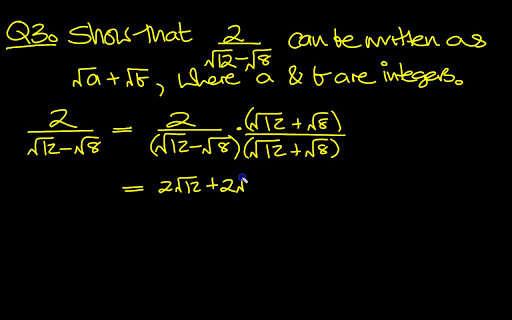 Q3. Show that 2/(√12-√8) can be written as
√a + √b, where a & b are integers.
2/(√12-√8) = 2/(√12-√8) · (√12+√8)/(√12+√8)
= 2√12 + 2√